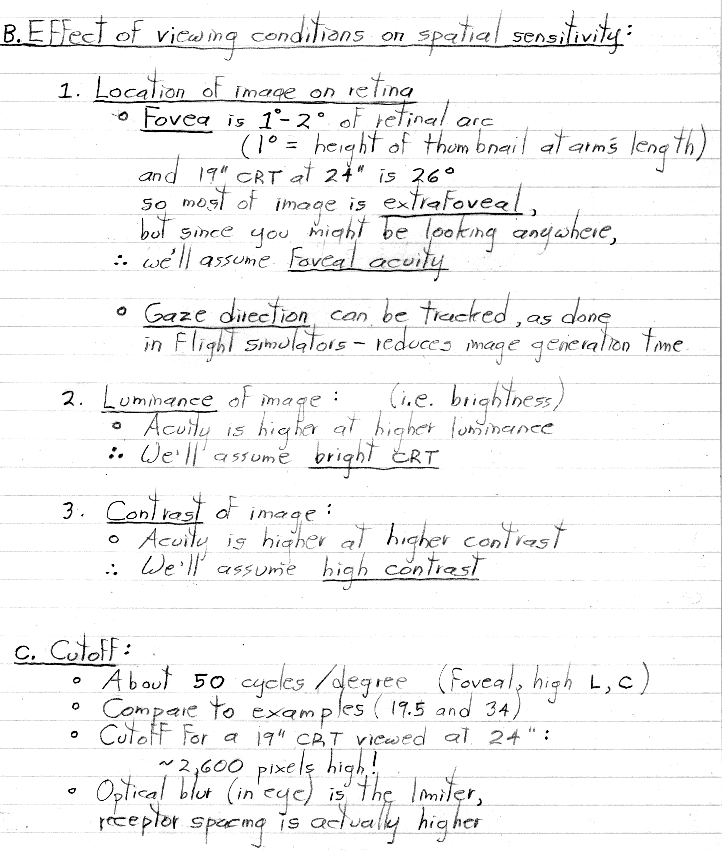 B. Effect of viewing conditions on spatial sensitivity:
1. Location of image on retina
o Fovea is 1°-2° of retinal arc
(1° = height of thumbnail at arm's length)
and 19" CRT at 24" is 26°
so most of image is extrafoveal,
but since you might be looking anywhere,
∴ we'll assume foveal acuity
o Gaze direction can be tracked, as done
in flight simulators - reduces image generation time
2. Luminance of image: (i.e. brightness)
o Acuity is higher at higher luminance
∴ We'll assume bright CRT
3. Contrast of image:
o Acuity is higher at higher contrast
∴ We'll assume high contrast
C. Cutoff:
o About 50 cycles/degree (foveal, high L, C)
o Compare to examples (19.5 and 34)
o Cutoff for a 19" CRT viewed at 24":
~2,600 pixels high!
o Optical blur (in eye) is the limiter,
receptor spacing is actually higher